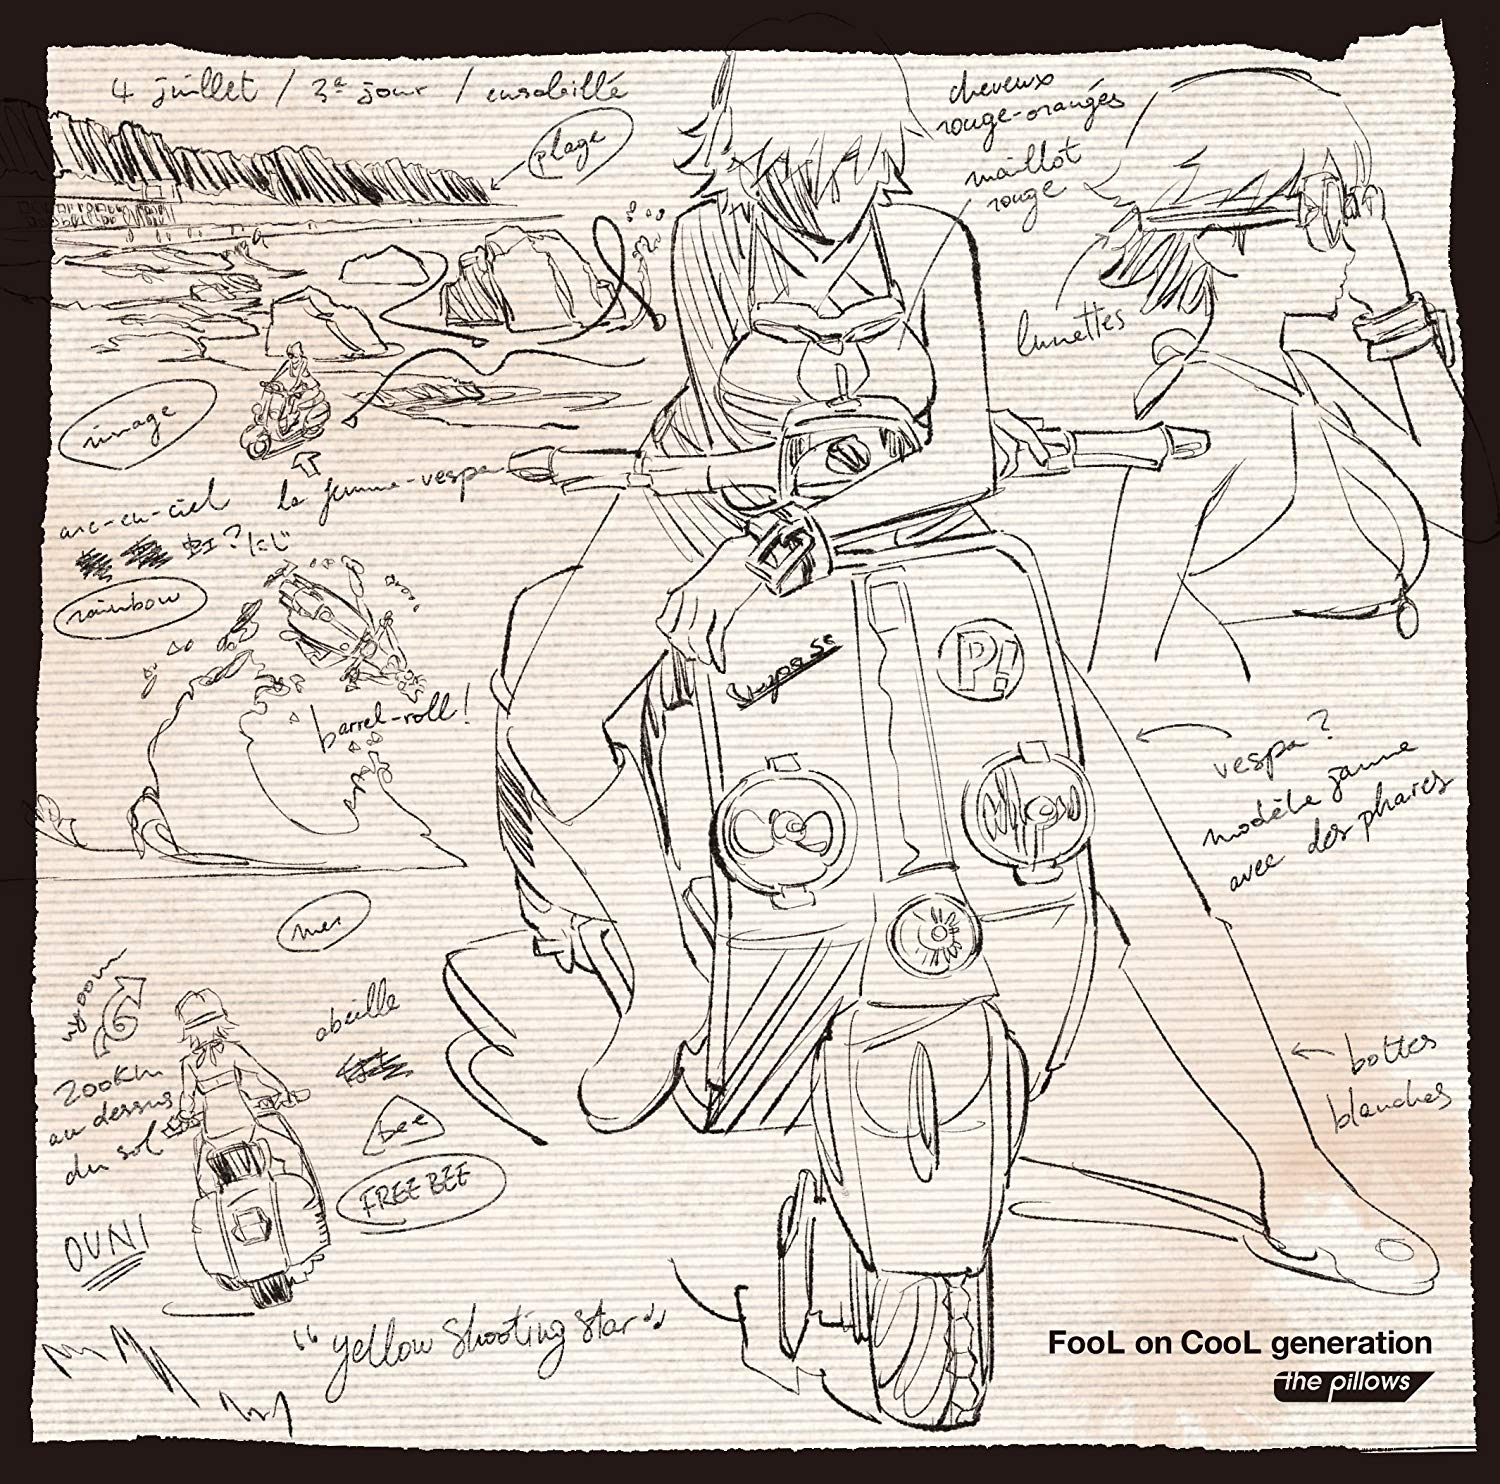 4 juillet / 3e jour / ensoleillé
plage
cheveux
rouge-orangés
maillot
rouge
lunettes
image
la femme-vespa
arc-en-ciel
虹?にじ
rainbow
barrel-roll!
Vespa SS
P!
vespa?
modèle jaune
avec des phares
mer
abeille
200Km
au dessus
du sol
bee
FREE BEE
OVNI
bottes
blanches
"yellow shooting star
FooL on CooL generation
the pillows